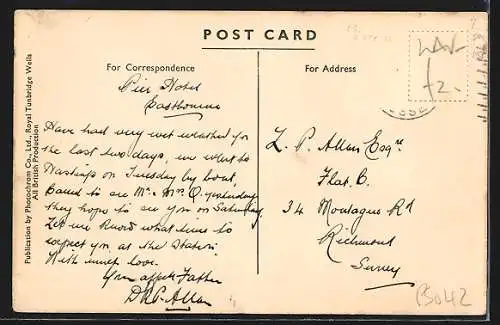 POST CARD
For Correspondence
For Address
Publication by Photochrom Co., Ltd., Royal Tunbridge Wells
All British Production
Pier Hotel
Eastbourne
Have had very wet weather for
the last two days, we went to
Hastings on Tuesday by boat,
to see Mr. & Mrs. Q. yesterday
they hope to see you on Saturday
Let me know what time to
expect you at the Station.
With much love.
Your affect. Father
Allan
L. P. Allan Esqre
Flat. B.
34 Montague Rd
Richmond
Surrey
B042